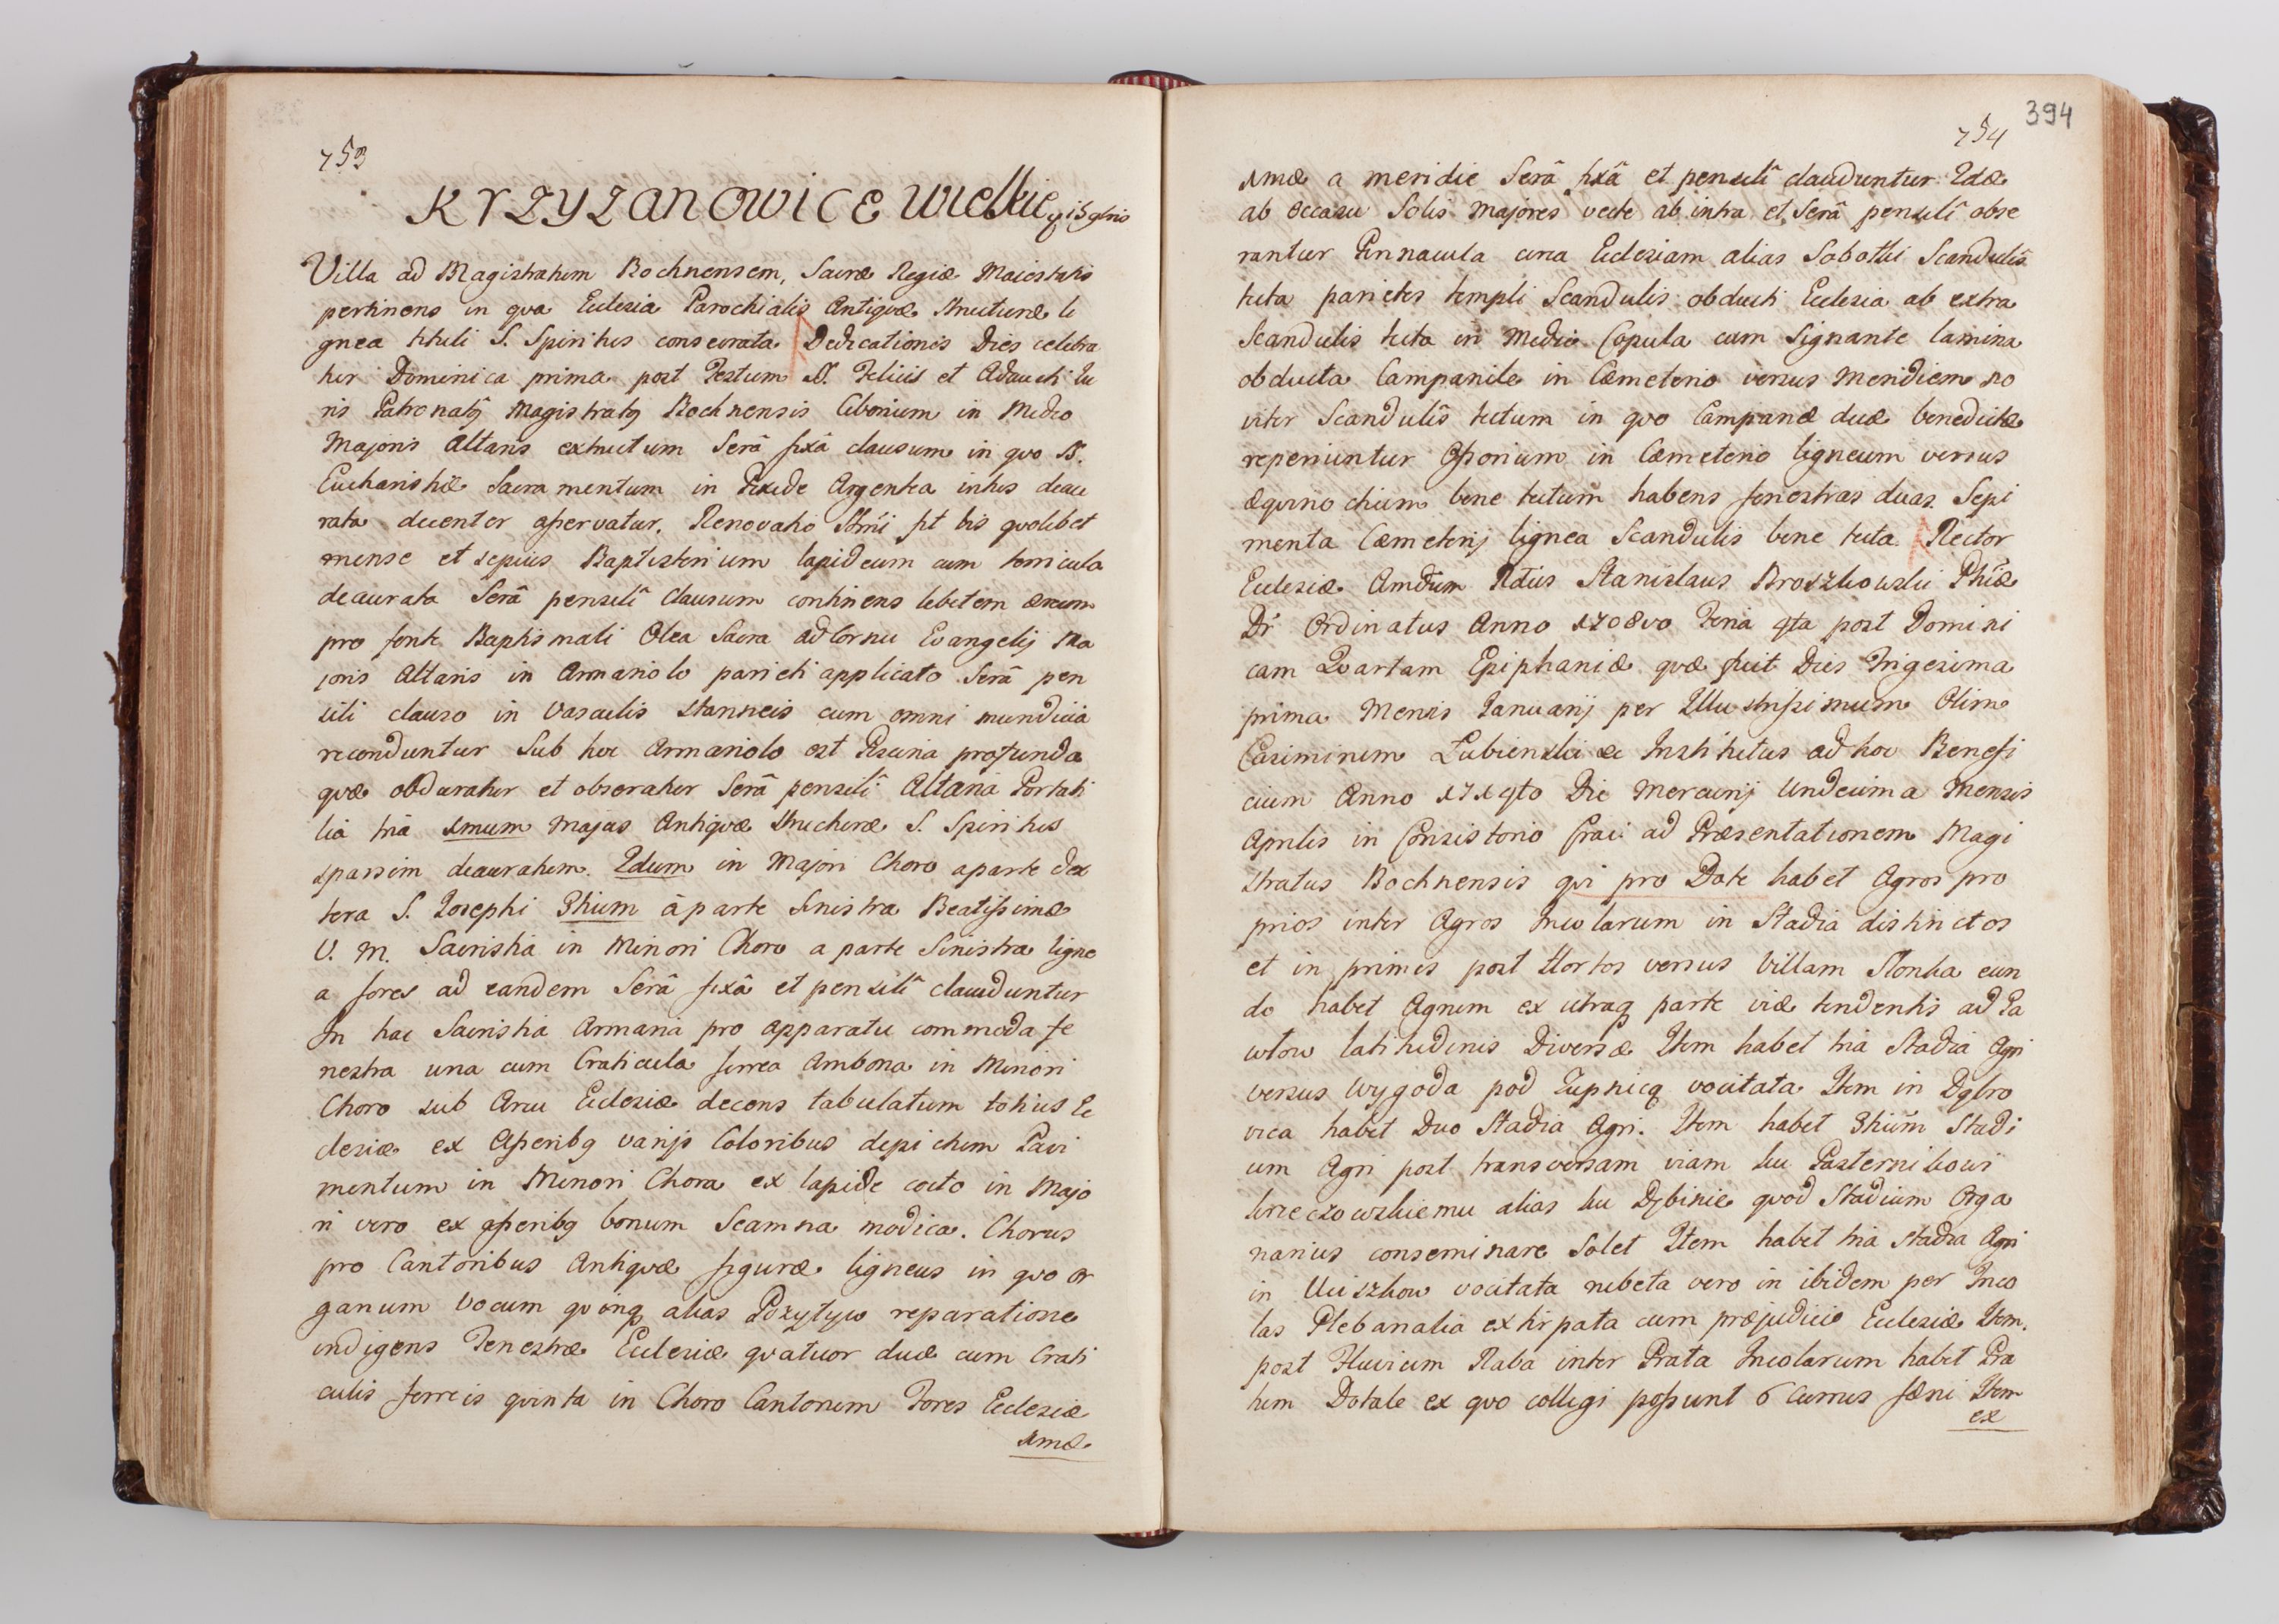 753
KRZYZANOWICE Wielkie
Villa ad Magistratum Bochnensem, Sacræ Regiæ Maiestatis
pertinens in qva Ecclesia Parochialis Antiqvæ structuræ li
gnea tituli S. Spiritus consecrata. Dedicationis Dies celebra
tur Dominica prima post Festum SS. Felicis et Adaucti Iu
ris Patronatq Magistratq Bochnensis Ciborium in Medio
Majoris Altaris extructum Serâ fixâ clausum in qvo SS.
Eucharistiæ Sacramentum in Pixide Argentea intus deau
rata decenter asservatur. Renovatio fit bis qvolibet
mense et sepius Baptisterium lapideum cum turricula
deaurata Serâ pensili clausum continens lebetem æreum
pro fonte Baptismali Olea Sacra ad Cornu Evangelij Ma
joris Altaris in Armariolo parieti applicato Serâ pen
sili clauso in Vasculis stanneis cum omni mundicia
reconduntur Sub hoc Armariolo est Piscina profunda
qvæ obduratur et obseratur Serâ pensili Altaria Portati
lia tria 1mum Majus Antiqvæ structuræ S. Spiritus
sparsim deauratum. 2dum in Majori Choro a parte dex
tera S. Iosephi 3tium à parte Sinistra Beatissimæ
V. M. Sacristia in Minori Choro a parte Sinistra ligne
a fores ad eandem Serâ fixâ et pensili clauduntur
In hac Sacristia Armaria pro apparatu commoda fe
nestra una cum Craticula ferrea Ambona in Minori
Choro sub Arcu Ecclesiæ decens tabulatum totius Ec
clesiæ ex Asseribq varijs Coloribus depictum Pavi
mentum in Minori Choro ex lapide cocto in Majo
ri vero ex asseribq bonum Scamna modica. Chorus
pro Cantoribus Antiqvæ figuræ ligneus in qvo or
ganum Vocum qvinq alias Pozytyw reparatione
indigens Fenestræ Ecclesiæ qvatuor duæ cum Crati
culis ferreis qvinta in Choro Cantorum Fores Ecclesiæ
1mæ
394
754
1mæ a meridie Serâ fixâ et pensili clauduntur 2dæ
ab occasu Solis Majores vecte ab intra et Serâ pensili obse
rantur Pinnacula circa Ecclesiam alias Sobotki Scandulis
tecta parietes templi Scandulis obducti Ecclesia ab extra
Scandulis tecta in Medio Copula cum Signante lamina
obducta Campanile in Cæmeterio versus Meridiem no
viter Scandulis tectum in qvo Campanæ duæ benedictæ
reperiuntur Ossorium in Cæmeterio ligneum versus
æqvinoctium bene tectum habens fenestras duas. Sepi
menta Cæmeterij lignea Scandulis bene tecta. Rector
Ecclesiæ Stanislaus Broszkowski Phiæ
Dr Ordinatus Anno 1708vo Feria 4ta post Domini
cam Qvartam Epiphaniæ qvæ fuit Dies Trigesima
prima Mensis Ianuarij per Illustrissimum Olim
Casimirum Łubienski Institutus ad hoc Benefi
cium Anno 1714to Die Mercurij Undecima Mensis
Aprilis in Consistorio Crac: ad Præsentationem Magi
stratus Bochnensis qvi pro Dote habet Agros pro
prios inter Agros Incolarum in Stadia distinctos
et in primis post Hortos versus Villam Słonka eun
do habet Agrum ex utraq parte viæ tendentis ad Pa
wlow latitudinis Diversæ Item habet tria Stadia Agri
versus Wygoda pod Zupnicą vocitata Item in Dąbro
vica habet Duo Stadia Agri. Item habet 3tium Stadi
um Agri post transversam viam ku Pasternikowi
krzeczowskiemu alias ku Dębinie qvod Stadium Orga
narius conseminare Solet Item habet tria stadia Agri
in Uiszkow vocitata rubeta vero in ibidem per Inco
las Plebanalia extirpata cum præjudicio Ecclesiæ Item.
post Fluvium Raba inter Prata Incolarum habet Pra
tum Dotale ex qvo colligi possunt 6 Currus fæni Item
ex